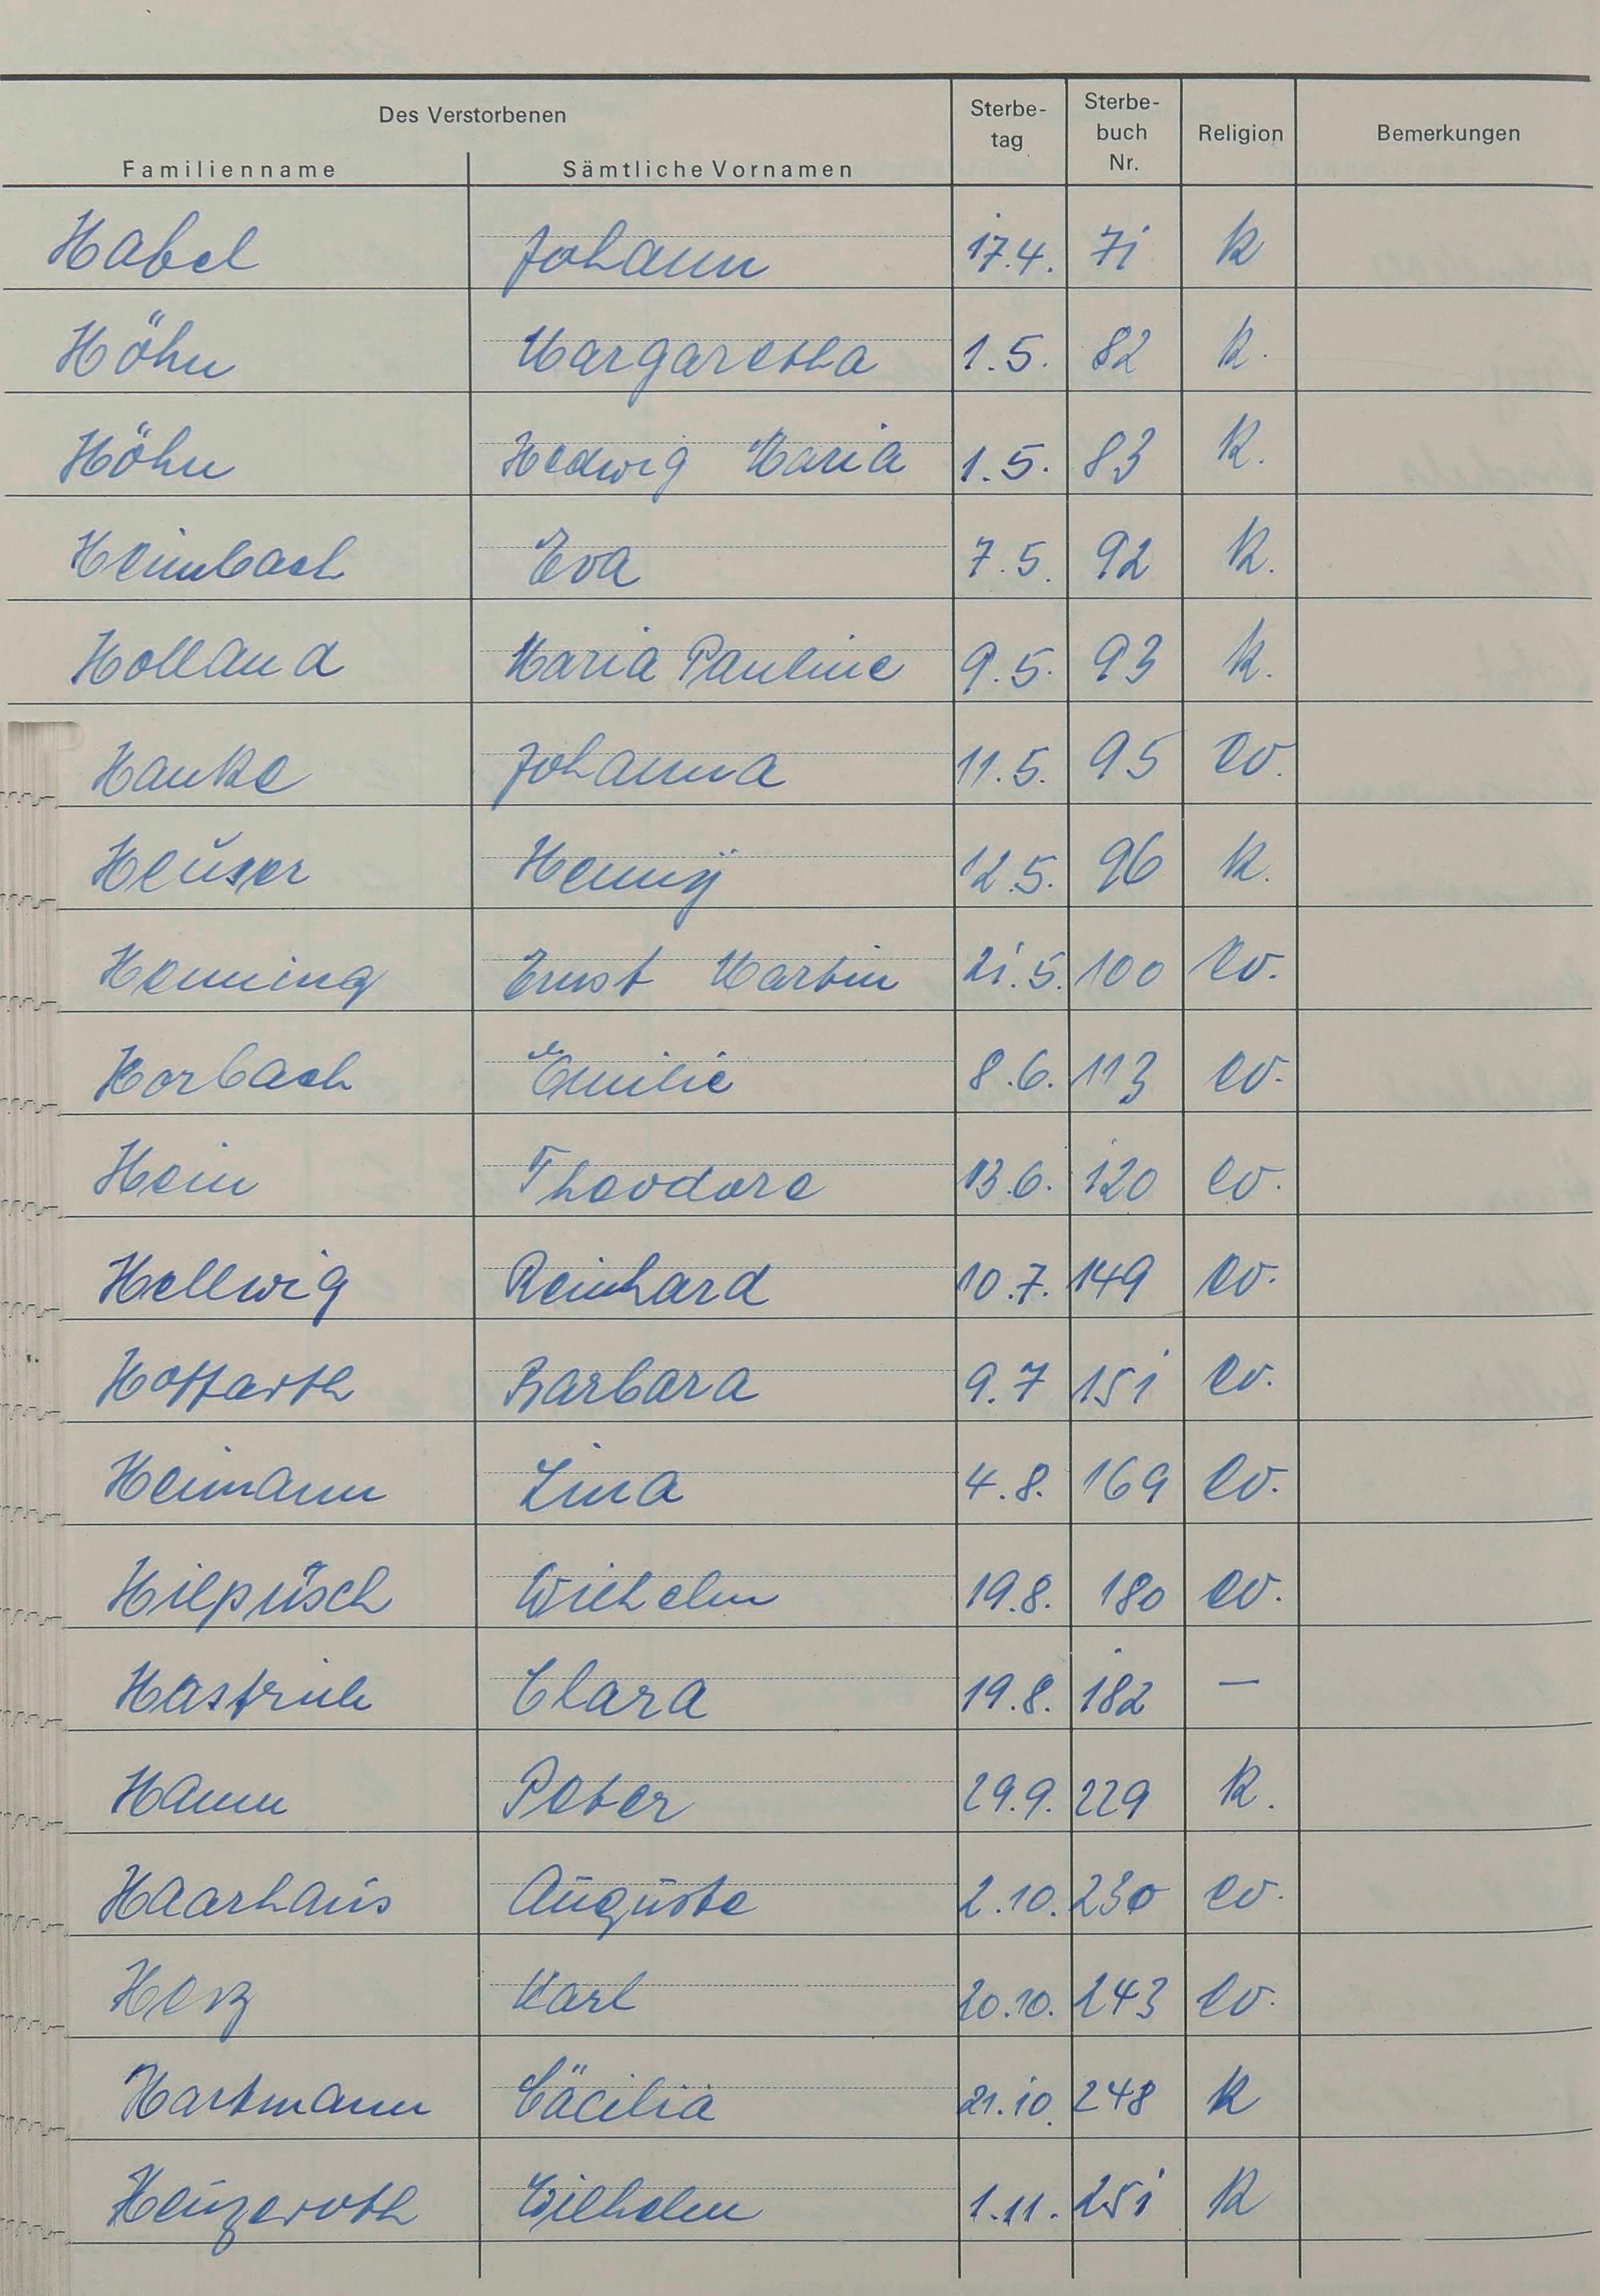 Des Verstorbenen
Familienname Sämtliche Vornamen Sterbe-tag Sterbe-buch Nr. Religion Bemerkungen
Habel Johann 17.4. 71 k
Höhn Margaretha 1.5. 82 k.
Höhn Hedwig Maria 1.5. 83 k.
Heimbach Eva 7.5. 92 k.
Holland Maria Pauline 9.5. 93 k.
Hanke Johanna 11.5. 95 ev.
Heuser Henny 12.5. 96 k.
Henning Ernst Martin 21.5. 100 ev.
Horbach Emilie 8.6. 113 ev.
Hein Theodore 13.6. 120 ev.
Hellwig Reinhard 10.7. 149 ev.
Hoffarth Barbara 9.7 151 ev.
Heimann Lina 4.8. 169 ev.
Hilpüsch Wilhelm 19.8. 180 ev.
Hastrich Clara 19.8. 182 —
Hamm Peter 29.9. 229 k.
Haarhaus Auguste 2.10. 230 ev.
Herz Karl 20.10. 243 ev.
Hartmann Cäcilia 21.10. 248 k
Heuzeroth Wilhelm 1.11. 251 k